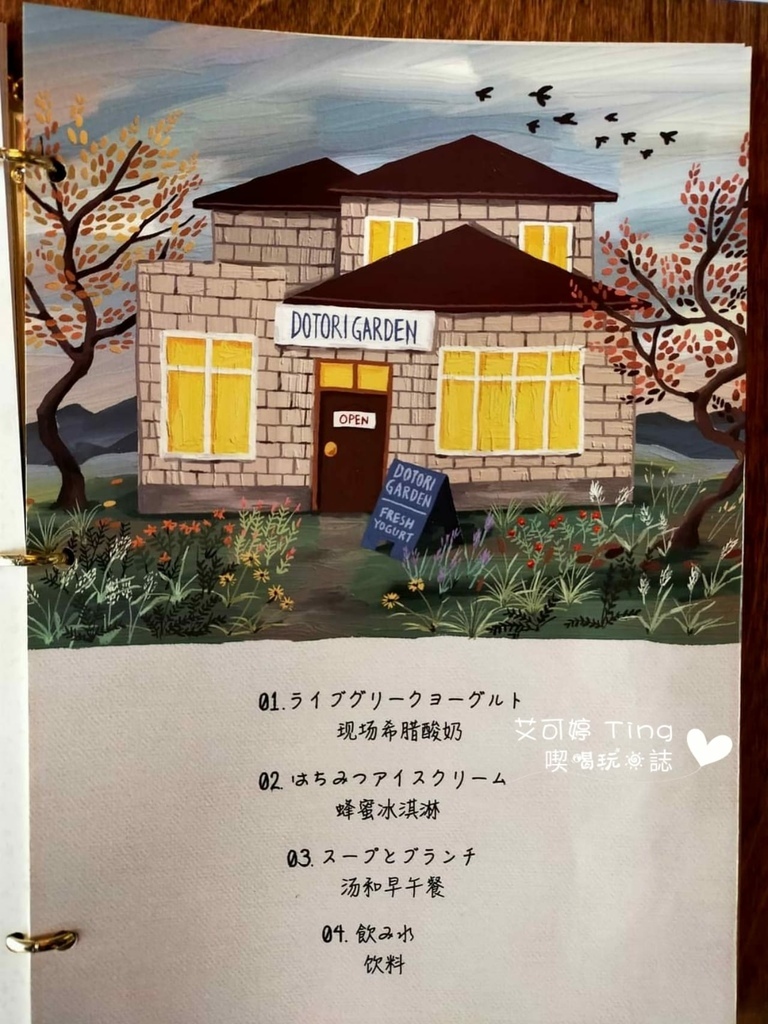 DOTORI GARDEN
OPEN
DOTORI
GARDEN
FRESH
YOGURT
01.ライブグリークヨーグルト
现场希腊酸奶
艾可婷 Ting
喫喝玩樂誌
02. はちみつアイスクリーム
蜂蜜冰淇淋
03. スープとブランチ
汤和早午餐
04. 飲み水
饮料